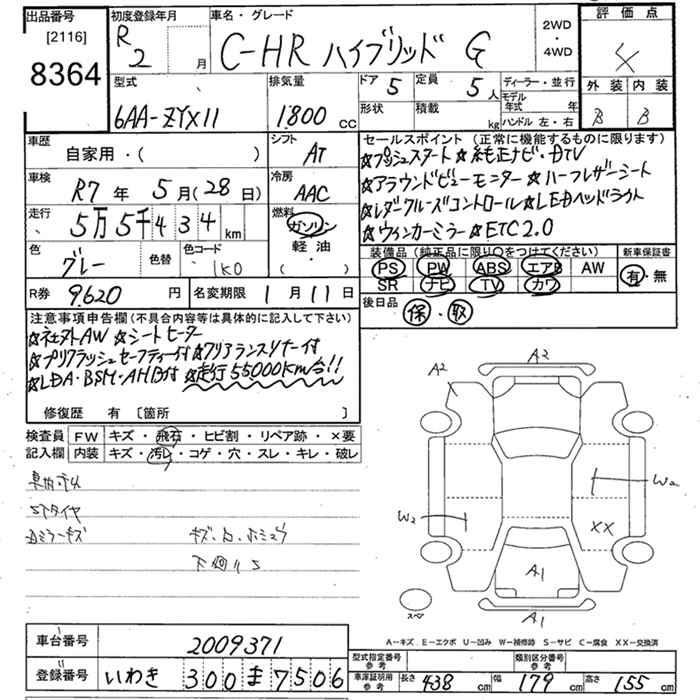 出品番号
[2116]
8364
初度登録年月
R2 月
車名・グレード
C-HR ハイブリッド G
2WD
・
4WD
評価点
4
外装 内装
B B
型式
6AA-ZYX11
排気量
1800 cc
ドア
5
定員
5人
形状
積載
kg
ディーラー・並行
モデル年式 年
ハンドル 左・右
車歴
自家用・( )
シフト
AT
車検
R7年 5月(28日)
冷房
AAC
走行
5万5千434 km
燃料
ガソリン
軽油
( )
色
グレー
色替
色コード
1K0
R券
9.620 円
名変期限
1月11日
セールスポイント(正常に機能するものに限ります)
☆プッシュスタート☆純正ナビ・DTV
☆アラウンドビューモニター☆ハーフレザーシート
☆レダークルーズコントロール☆LEDヘッドライト
☆ウィンカーミラー☆ETC2.0
装備品(純正品に限り○をつけてください)
PS PW ABS エアB AW
SR ナビ TV カワ
新車保証書
有・無
後日品
保・取
注意事項申告欄(不具合内容等は具体的に記入して下さい)
☆ネェストAW☆シートヒーター
☆プリクラッシュセーフティー付☆クリアランスソナー付
☆LDA・BSM・AHB付☆走行55000km台!!
修復歴 有 [箇所 ]
検査員記入欄
FW キズ・飛石・ヒビ割・リペア跡・×要
内装 キズ・汚レ・コゲ・穴・スレ・キレ・破レ
STタイヤ
ミラーキズ
A2
A2
W2
W2
XX
A1
A1
スペア
A-キズ E-エクボ U-凹み W-補修跡 S-サビ C-腐食 XX-交換済
車台番号
2009371
登録番号
いわき 300 ま 7506
型式指定番号
参考
類別区分番号
参考
車庫証明用
参考
長さ 438 cm
幅 179 cm
高さ 155 cm